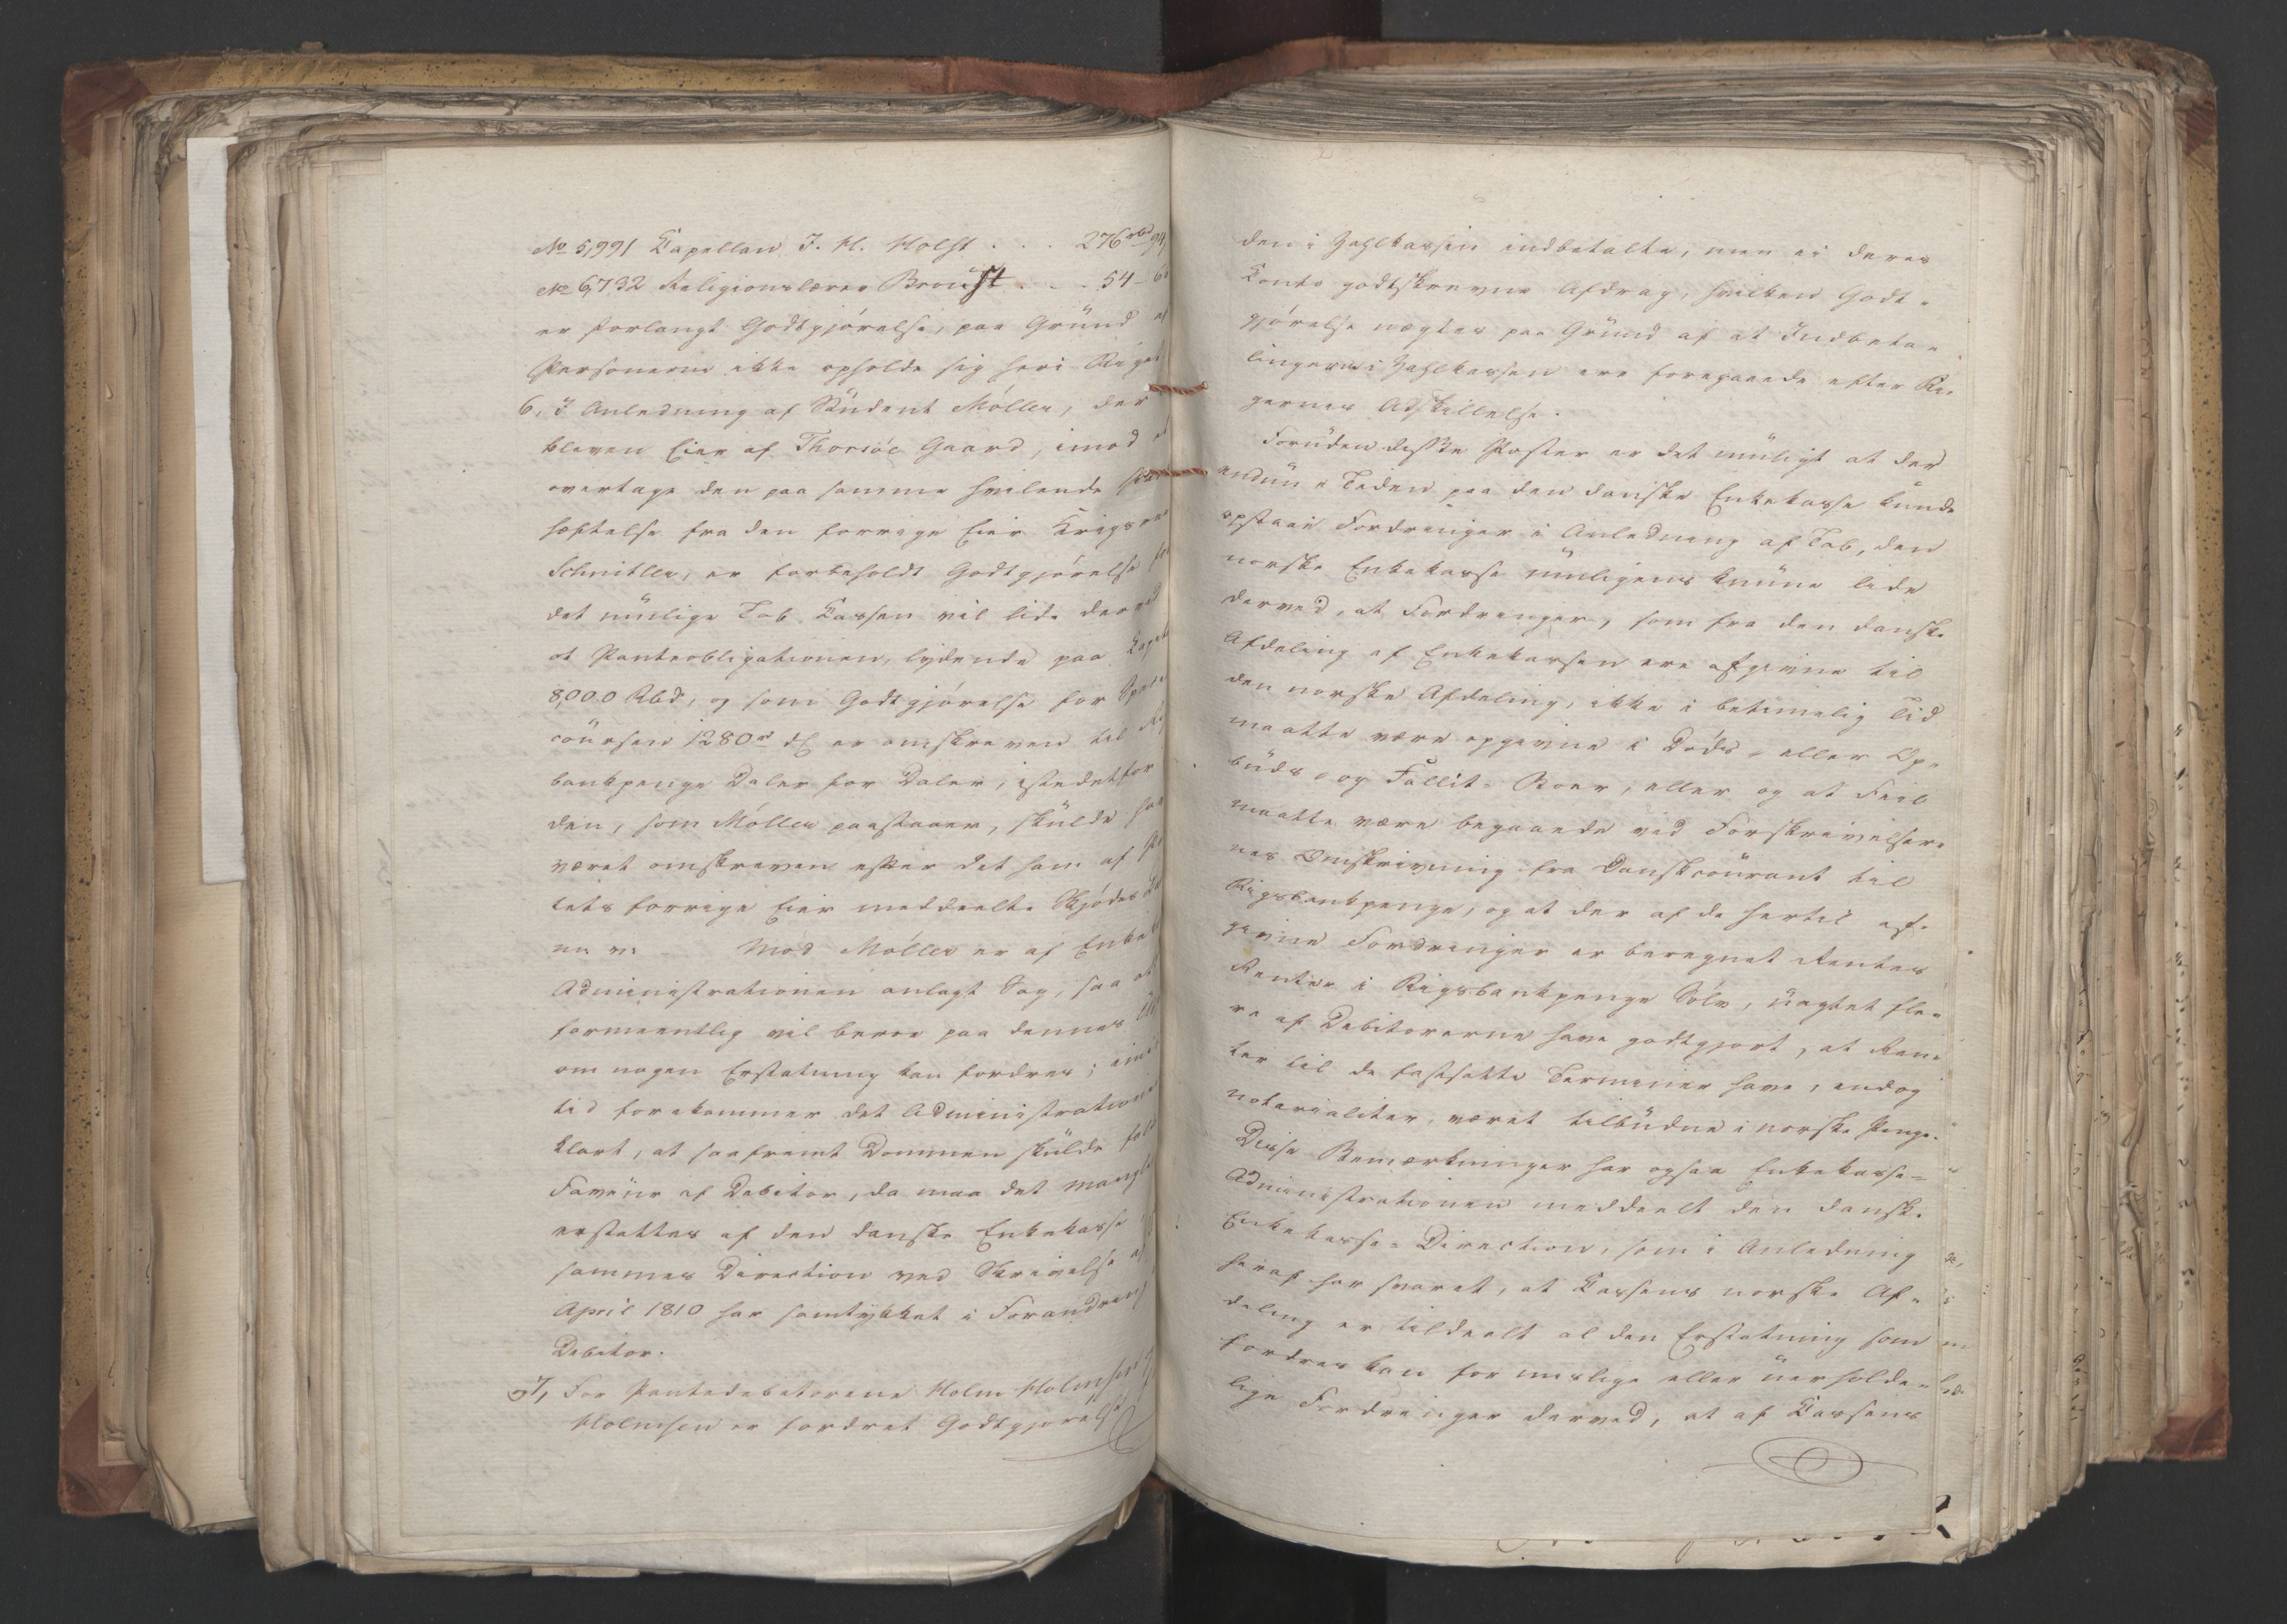 No 5,991 Capellan J. H. Holst . . . 276 rbd 94
No 6,732 Religionslærer Broust . . . 54 - 6
er forlangt Godtgjørelse, paa Grund af
Personerne ikke opholde sig her i Riget
6, I Anledning af Student Møller, der
bleven Eier af Thorsøe Gaard, imod at
overtage den paa samme hvilende
hæftelse fra den forrige Eier Krigsraad
Schnitler, er forbeholdt Godtgjørelse for
det mulige Tab Cassen vil lide derved
at Panteobligationen, lydende paa Capital
8,000 Rbd, og som Godtgjørelse for Specie
coursen 1280 er omskreven til
bankpenge Daler for Daler, istedetfor
den, som Møller paastaaer, skulde have
været omskreven efter det ham af
lets forrige Eier meddeelte Skjødes
Mod Møller er af Enke
Administrationen anlagt Sag, saa at
formeentlig vil beroe paa dennes
om nogen Erstatning kan fordres; imid
tid forekommer det Administrationen
klart, at saafremt Dommen skulde falde
Faveur af Debitor, da maa det Manglende
erstattes af den danske Enkekasse
sammes Direction ved Skrivelse af
April 1810 har samtykket i Forandring
Debitor.
7, For Pantedebitorerne Holm Holmsen
Holmsen er fordret Godtgjørelse
den i Zahlkassen indbetalte, men ei deres
Conto godtskrevne Afdrag, hvilken Godt-
gjørelse nægtes paa Grund af at Indbeta-
lingerne i Zahlkassen ere foregaaede efter Ri-
gernes Adskillelse.
Foruden disse Poster er det muligt at der
endnu i Tiden paa den danske Enkekasse kunde
opstaae Fordringer i Anledning af Tab, den
norske Enkekasse muligens kunne lide
derved, at Fordringer, som fra den danske
Afdeling af Enkekassen ere afgivne til
den norske Afdeling, ikke i betimelig Tid
maatte være opgivne i Døds- eller Op-
buds- og Fallit-Boer, eller og at Feil
maatte være begaaede ved Forskrivelser-
nes Omskrivning fra Danskcourant til
Rigsbankpenge, og at der af de hertil af-
givne Fordringer er beregnet Renters
Renter i Rigsbankpenge Sølv, uagtet fle-
re af Debitorerne have godtgjort, at Ren-
ter til de fastsatte Terminer have, endog
notarialiter, været tilbudne i norske Penge.
Disse Bemærkninger har ogsaa Enkekasse-
Administrationen meddeelt den danske
Enkekasse-Direction, som i Anledning
heraf har svaret, at Cassens norske Af-
deling er tildeelt al den Erstatning som
fordres kan for mislige eller uerholde-
lige Fordringer derved, at af Cassens